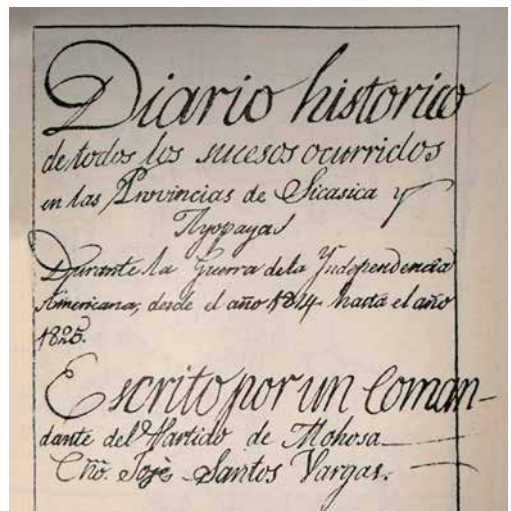 Diario historico
de todos los sucesos ocurridos
en las Provincias de Sicasica y
Ayopaya
Durante la Guerra dela Yndependencia
Americana, desde el año 1814 hasta el año
1825.
Escrito por un Coman-
dante del Partido de Mohosa
Cño. Josè Santos Vargas.